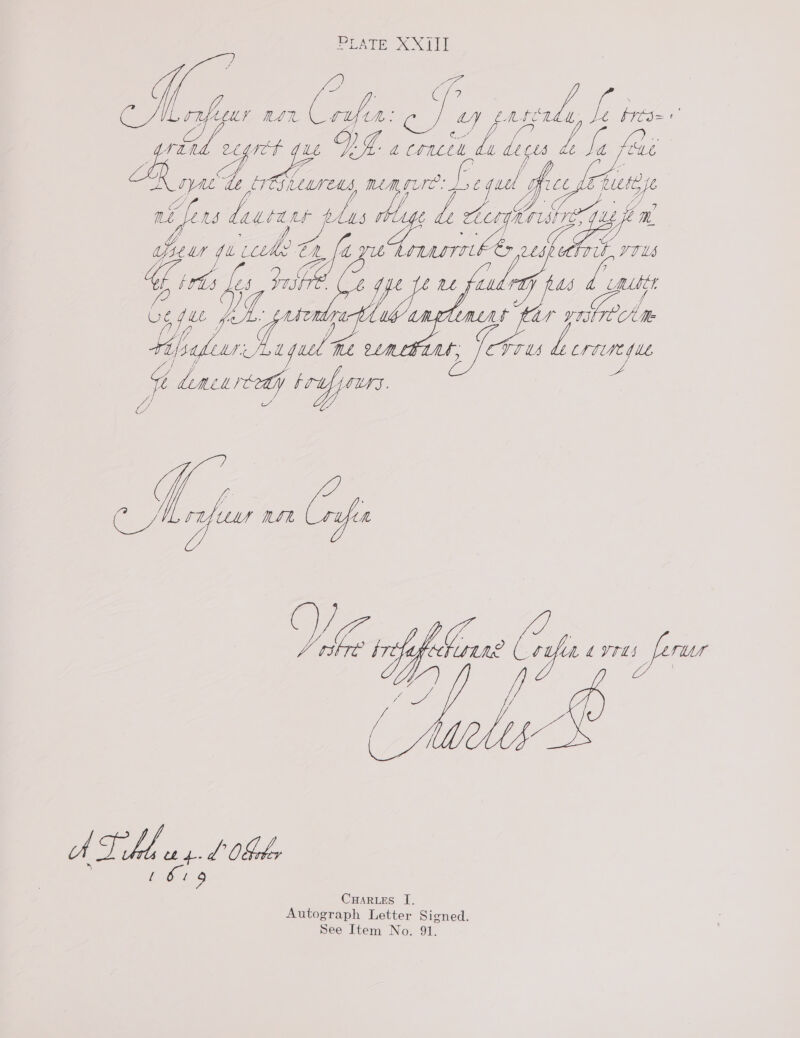 PLATE XXIII
Monsieur mon Cousin: J'ay entendu, le tres-
grand regrét que V.A. a conceu du deçes de la feuë
Royne de tresheureus, memoire: Lequel office de pieté, je
me sens dautant plus oblige de recognoistre, que je m
asseur qu'icelle en sa vie honnoroit & respectoit, vous
et, tous les vostre. Ce que je ne faudray pas d'imiter.
Ce que V.A: entendra plus amplement par vostre Am-
bassadeur: Auquel me remettant; Je vous de croire que
Je demeureray tousjours.
Monsieur mon Cousin
Vostre tresaffectionné Cousin a vous servir
Charles P
A ce 4. d'October
1619
CHARLES I.
Autograph Letter Signed.
See Item No. 91.